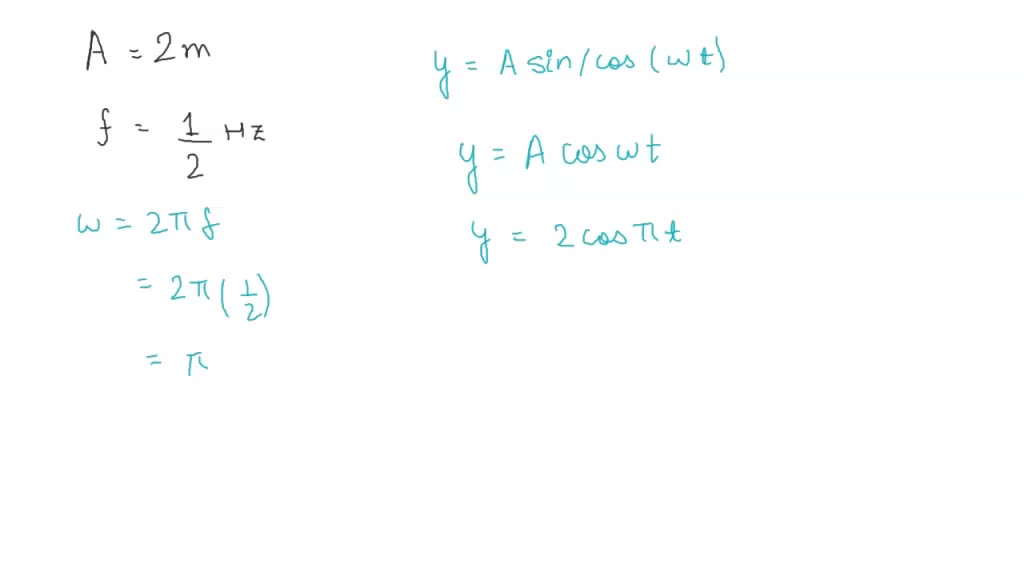 A = 2m
f = 1/2 Hz
ω = 2πf
= 2π(1/2)
= π
y = A sin/cos (ωt)
y = A cos ωt
y = 2 cos πt